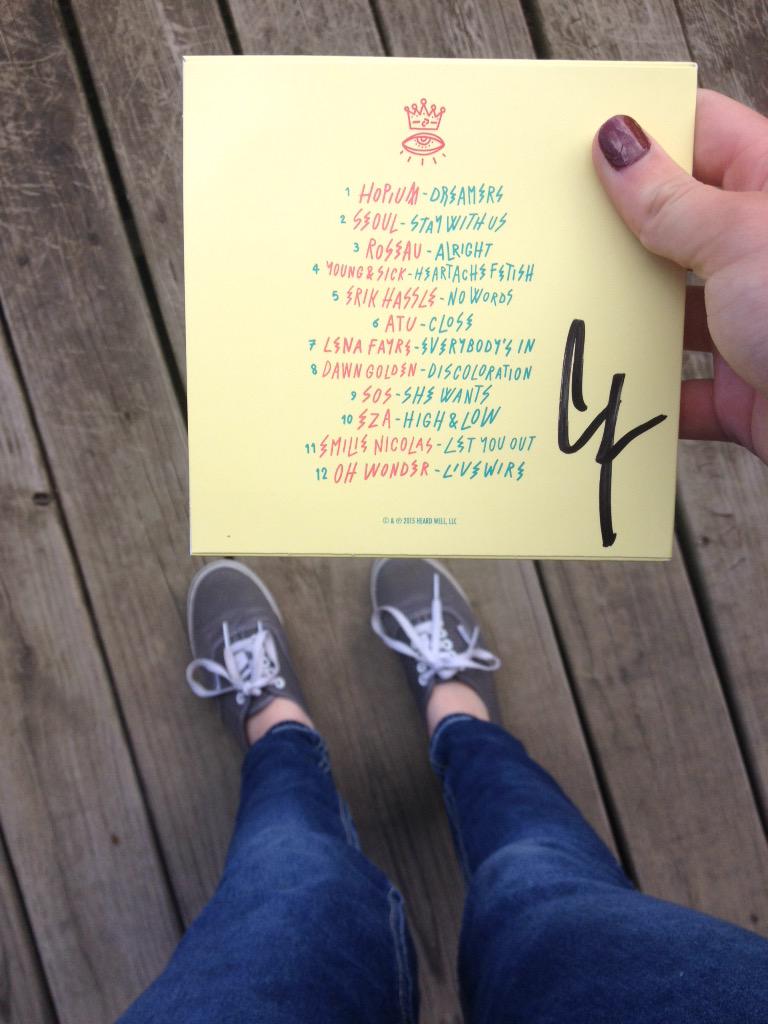 1 HOPIUM - DREAMERS
2 SEOUL - STAY WITH US
3 ROSEAU - ALRIGHT
4 YOUNG & SICK - HEARTACHE FETISH
5 ERIK HASSLE - NO WORDS
6 ATU - CLOSE
7 LENA FAYRE - EVERYBODY'S IN
8 DAWN GOLDEN - DISCOLORATION
9 SOS - SHE WANTS
10 EZA - HIGH & LOW
11 EMILIE NICOLAS - LET YOU OUT
12 OH WONDER - LIVEWIRE
© & ℗ 2015 HEARD WELL, LLC